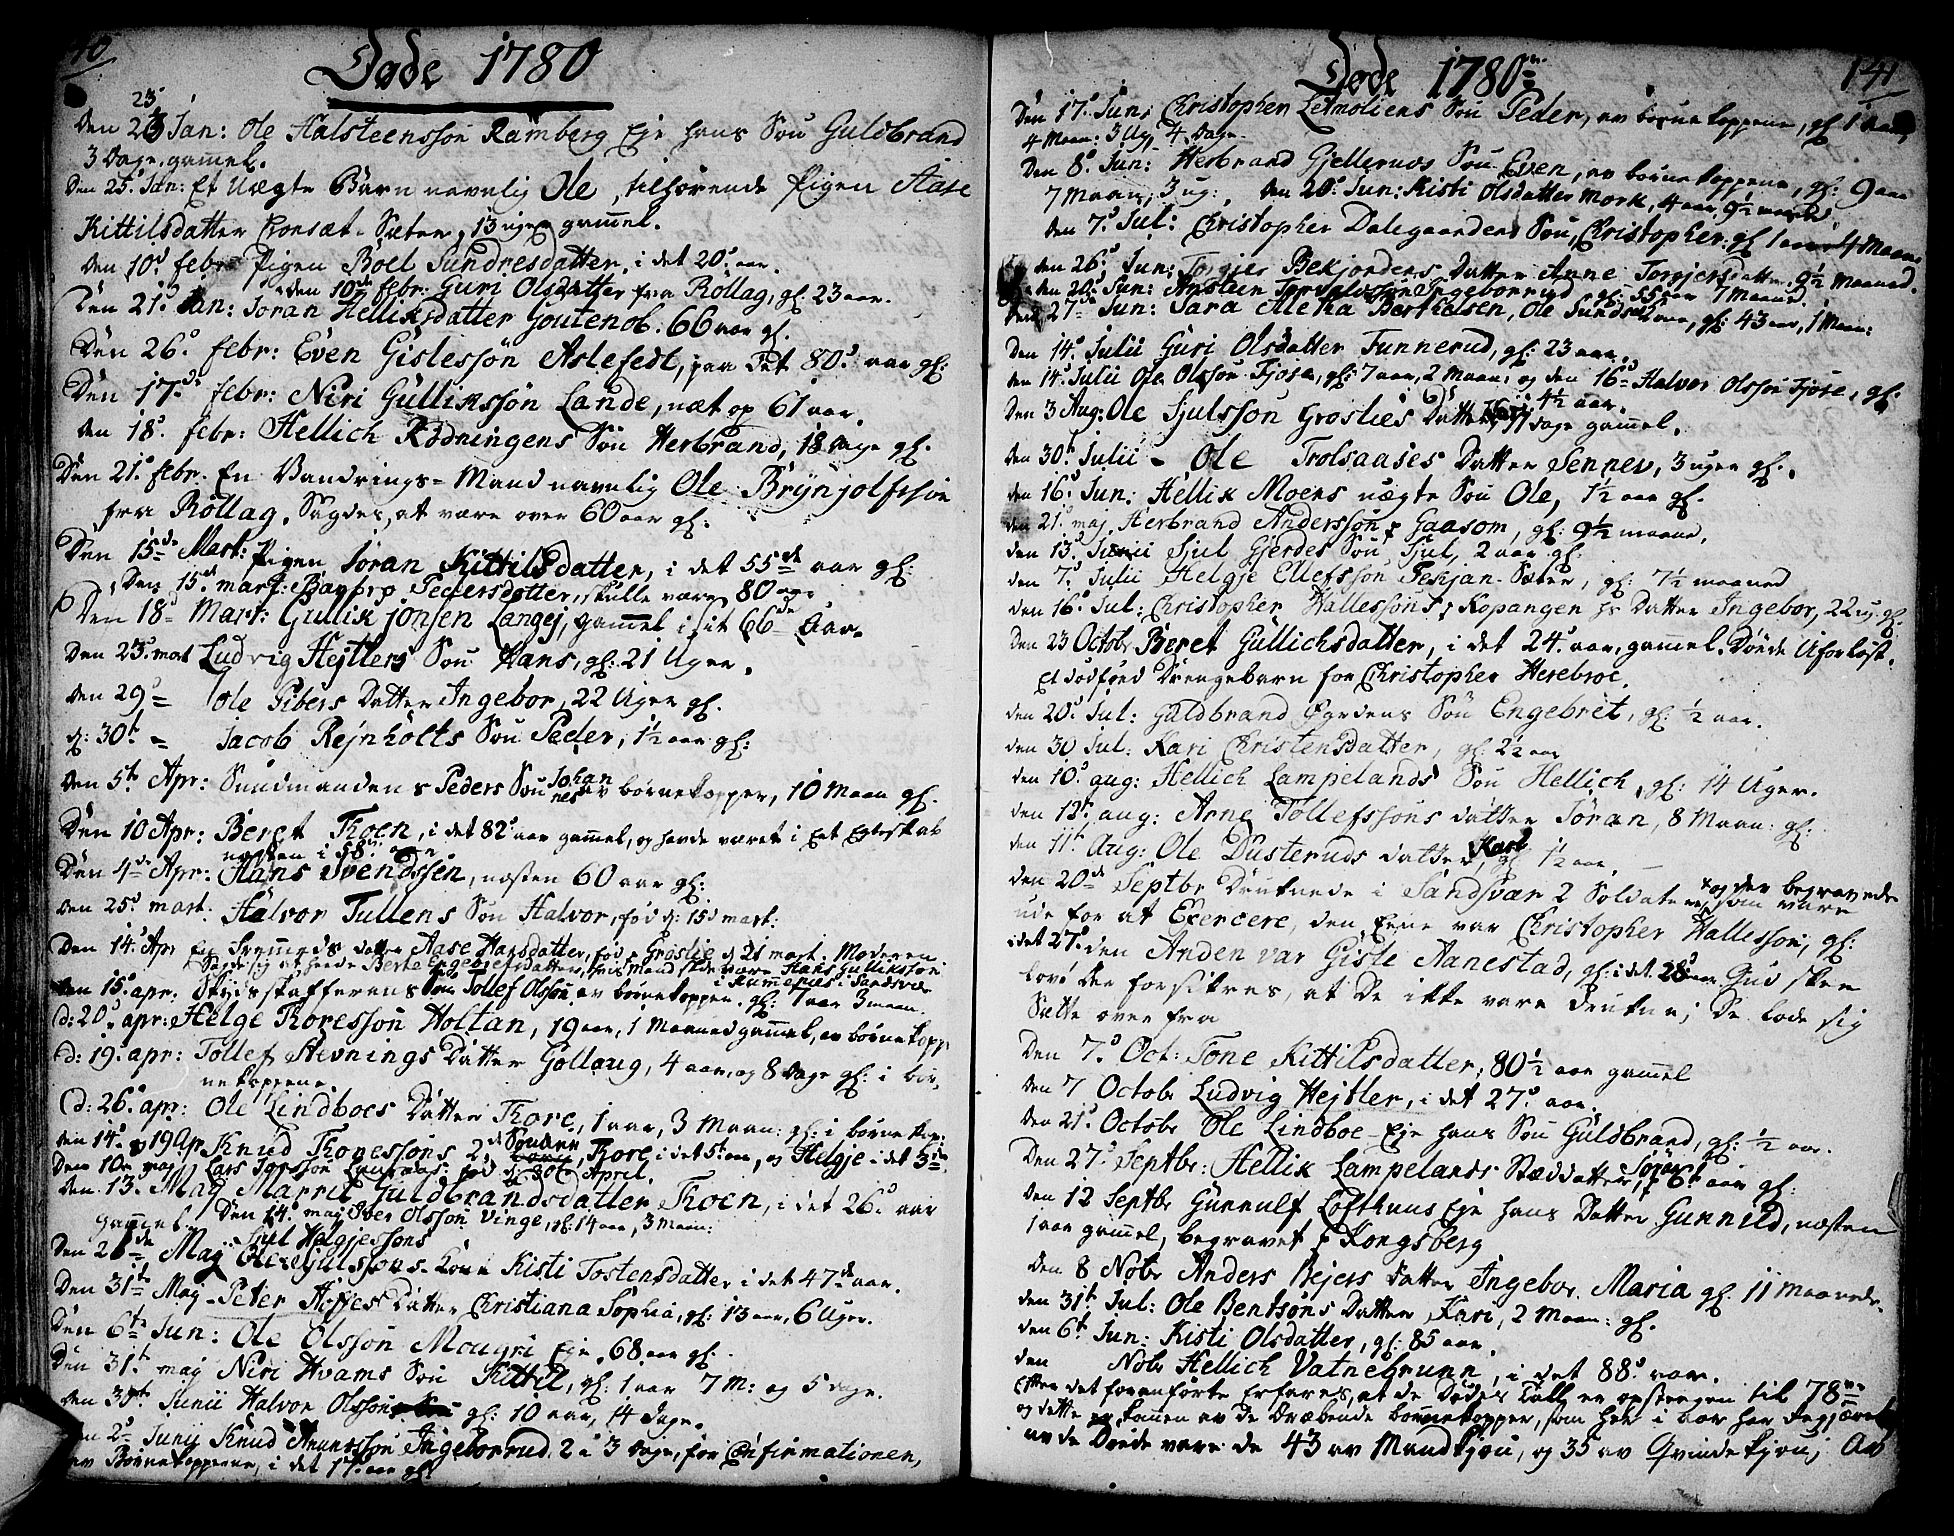 40
Døde 1780
23
Den 23 Jan: Ole Halsteenssøn Ramberg Eje hans Søn Guldbrand
3 Dage gam̄el.
Den 25d Jan: Et Uægte Barn navnlig Ole, tilhørende Pigen Aase
Kittilsdatter Cronsæt-Sæter, 13 uger gam̄el.
den 10d febr Pigen Boel Sundresdatter, i det 20d aar.
den 10de febr: Guri Olsdatter fra Rollag, gl: 23 aar.
Den 21d Jan: Joran Helliksdatter Goutenob. 66 aar gl.
Den 26d febr: Even Gislessøn Aslefedt, paa det 80d aar gl:
Den 17de febr: Niri Gulliksøn Lande, næst op 61 aar
den 18d febr: Hellich Rødningens Søn Herbrand, 18 dage gl.
Den 21d febr. En Vandrings-Mand navnlig Ole Brynjolfssøn
fra Rollag. Sagdes, at være over 60 aar gl.
Den 15de Mart: Pigen Joran Kittilsdatter, i det 55de aar gl:
Den 15de mart: Barbro Pedersdatter, skulle være 80 aar
Den 18d Mart: Gullik Jonsen Langej, gam̄el i sit 66de Aar.
Den 23d mart Ludvig Hejtlers Søn Hans, gl: 21 Uger.
den 29d Ole Pibers Datter Ingebor, 22 Uger gl.
d: 30t - Jacob Rejnholts Søn Peder, 1½ aar gl:
den 5t Apr: Sundmandens Peders Søn Johannes av børnekopper, 10 Maan gl.
Den 10 Apr: Beret Thoen, i det 82d aar gam̄el, og havde været i Et Egteskab
næsten i 58
Den 4de Apr: Hans Svendssen, næsten 60 aar gl:
den 25d mart. Halvor Tullens Søn Halvor, fød d: 15d mart:
Den 14d Apr En Fremmeds datter Aase Hansdatter, fød p Groslie d 21 mart. Moderen
Sagde sig at heede Berta Engebretsdatter, hvis Mand skal være Hans Gullikssøn
i Sandsvær
den 15d apr: Skydsskafferens Søn Tollef Olssøn, av børnekopper. gl: 7 aar 3 maan.
d: 20d apr: Helge Thoressøn Holtan, 19 aar, 1 Maaned gam̄el, av børnekopp
d: 19d apr: Tollef Stevnings Datter Gollaug, 4 aar, og 8 Dage gl: i bør-
nekopperne.
d: 26d apr: Ole Lindboes Datter Thore, 1 aar, 3 Maan: gl: i børnekop:
den 14d & 19 Apr Knud Thoressøns 2de Sønner, Thore i det 5t aar, og Helgje i det 3de
Den 10 maj Lars fød d: 30t April.
den 13d Maj Marrit Guldbrandsdatter Thoen, i det 26d aar
gam̄el. Den 14d maj Iver Olssøn Vinge, gl: 14 aar, 3 maan:
Sjul Helgjessøns
Den 26de Maj Kone Kisti Tostensdatter i det 47de aar.
Den 31te Maj Peter Hoffes Datter Christiana Sophia, gl: 13 aar, 6 Uger.
Den 6te Jun: Ole Olssøn Mougri Eje, 68 aar gl.
Den 31t maj Niri Hvams Søn Kittil, gl: 1 aar 7 M: og 5 dage.
den 3 Junii Halvor Olssøn gl: 10 aar, 14 dage.
den 2d Junij Knud Anunssøn Ingeborrud. 2 à 3 Dage, før Confirmationen,
av Børnekopperne, i det 17d aar gl.
Døde 1780
141
Den 17d Jun: Christopher Letmoliens Søn Peder, av børnekopperne, gl 1 aar,
4 Maan: 3 Ug. 4 Dage
Den 8d Jun: Herbrand Gjellerues Søn Even, av børnekopperne, gl: 9 aar
7 Maan, 3 ug: den 20d Jun: Kisti Olsdatter Mork, 4 aar, 9½ maaned
den 7d Jul: Christopher Dalegaardens Søn, Christopher: gl 1 aar 4 Maan
den 26d Jun: Torgjer Bekjordens Datter Anne Torgjersdatter 9½ Maaned.
den 20d Jun: Ansteen Torvalssøn Ingeborrud gl: 55 aar 7 Maaned
den 27de Jun: Sara Metha Berthelsen, Ole gl: 43 aar, 1 Maan:
Den 14d Julii Guri Olsdatter Tunnerud, gl: 23 aar.
den 14d Julii Ole Olssøn Fjose, gl: 7 aar, 2 Maan: og den 16d Halvor Olssøn Fjose, gl.
4½ aar.
Den 3 Aug: Ole Sjulssøn Groslies Datter dage gam̄el.
den 30t Julii - Ole Trolsaases Datter Sennev, 3 uger gl.
den 16d Jun: Hellik Moens uægte Søn Ole, 1½ aar gl.
den 21d maj Herbrand Anderssøn p Gaasom, gl: 9½ maaned,
den 13d Junii Sjul Gjerdes Søn Sjul, 2 aar gl:
den 7d Julii Helgje Ellefssøn Pekjan-Sæter, gl: 7½ maaned
den 16d Jul: Christopher Hallessøns p Kopangen hs Datter Ingebor, 22 ug gl.
Den 23 Octobr Beret Gullichsdatter, i det 24d aar, gam̄el. Døde Uforløst.
Et dødfød Drengebarn for Christopher Herebroe.
den 20d Jul: Guldbrand Øgrdens Søn Engebret, gl: ½ aar.
den 30 Jul: Kari Christensdatter, gl: 22 aar
den 10d aug: Hellich Lampelands Søn Hellich, gl: 14 Uger.
den 12t aug: Arne Tollefssøns datter Jøran, 8 Maan: gl:
den 11t Aug: Ole Dusteruds datter, Kari gl: 1½ aar.
den 20de Septbr Druknede i Sandsvær 2 Soldater, som vare
og der begravede
ude for at Exercere, den Eene var Christopher Hallessøn, gl:
i det 27d den Anden var Gisle Aanestad, gl: i det 28d aar. Gud skee
lov! der forsikres, at De ikke vare drukne; De lode sig
Sætte over fra
Den 7d Oct: Tone Kittilsdatter, 80½ aar gam̄el
den 7 Octobr Ludvig Hejtler, i det 27d aar.
den 21d Octobr Ole Lindboe-Eje hans Søn Guldbrand, gl: ½ aar.
Den 27d Septbr: Hellik Lampelands Stæddatter, 6t aar gl:
den 12 Septbr Gunnulf Lofthuus Eje hans Datter Gunnild, næsten
1 aar gam̄el, begravet p Kongsberg
den 8 Nobr Anders Bejers datter Ingebor Maria gl. 11 maaneder.
den 31t Jul: Ole Bentsøns Datter Kari, 2 Maan: gl.
den 6t Jun: Kisti Olsdatter, gl: 85 aar.
den Nobr Hellich Vatnebrunn, i det 88d aar.
Efter det foranførte Erfares, at de Dødes Tall er opsteegen til 78
og dette er kommen av de dræbende børnekopper, som her i aar har
av de Døde vare de 43 av Mandkjøn, og 35 av Qvindekjøn, Av